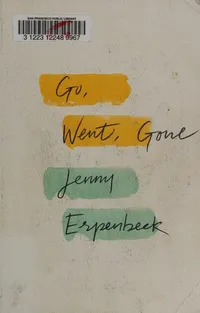 SAN FRANCISCO PUBLIC LIBRARY
3 1223 12248 9967
Go,
Went, Gone
Jenny
Erpenbeck